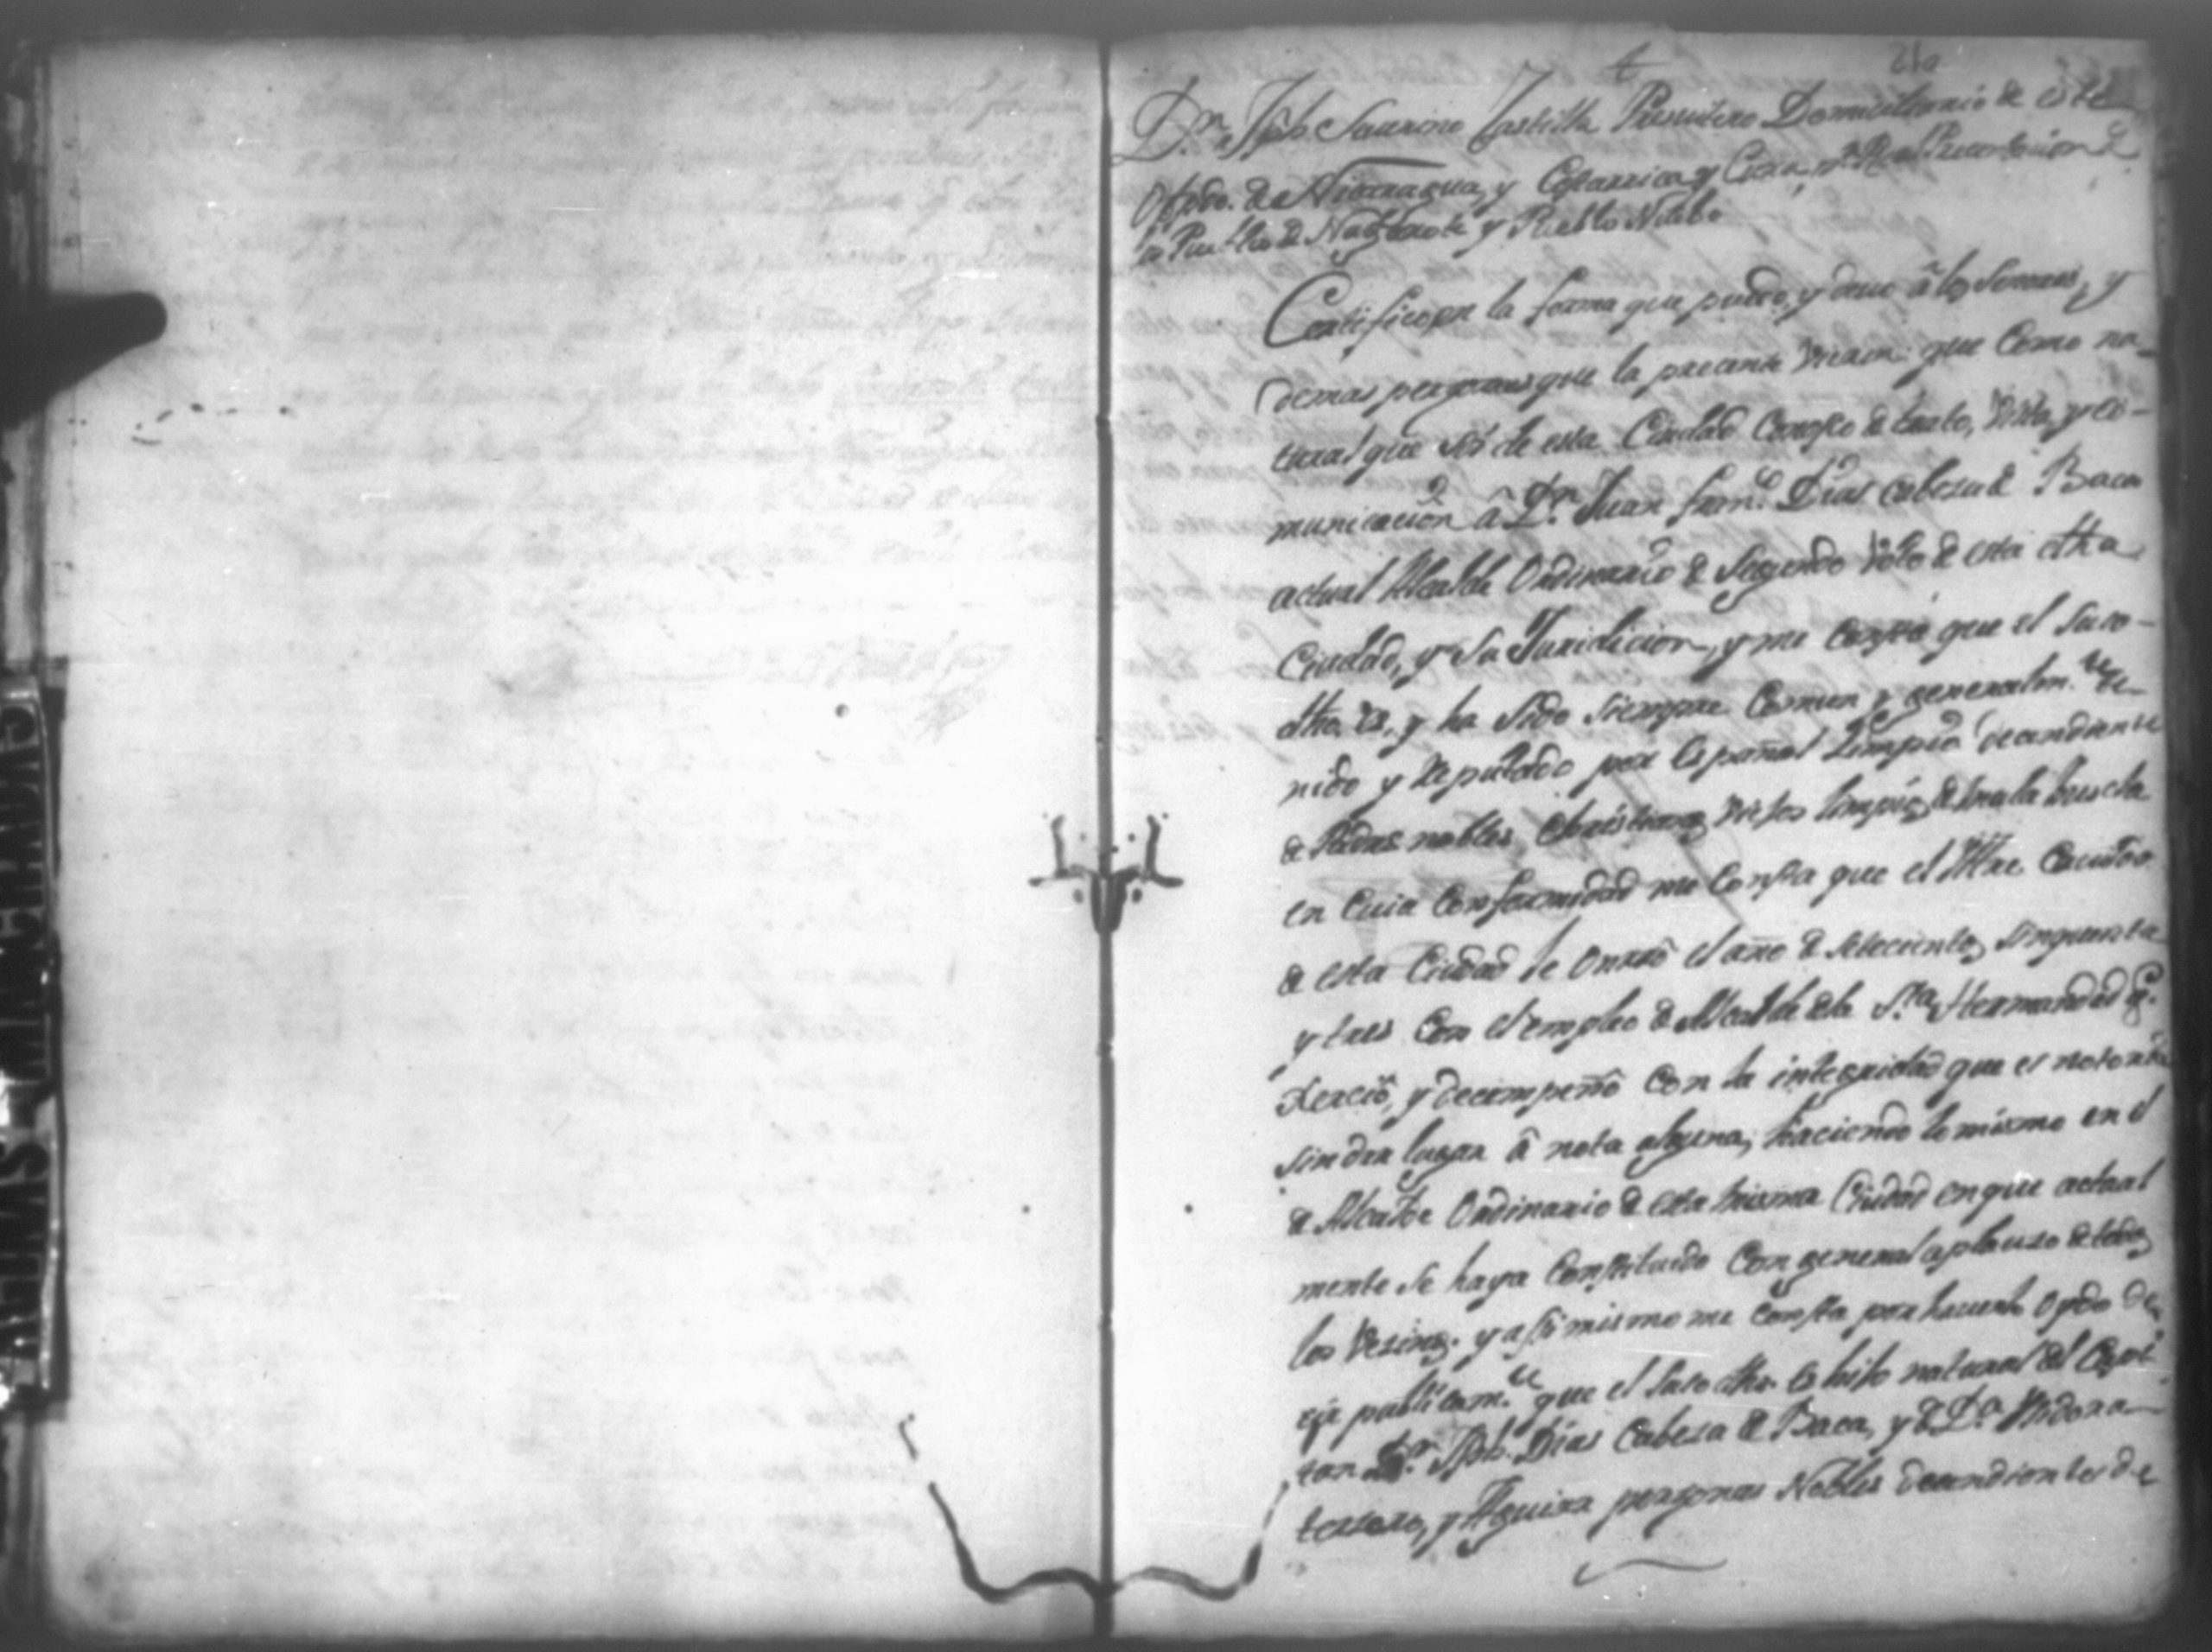 D.n Jph. Castilla Presvitero Domiciliario de este
Obpdo. de Nicaragua, y Costarrica y Cura p.r Rl Precentacion de
Nagarote y Pueblo Nuebo
Certifico en la forma que puedo, y devo â los Señores, y
demas personas que la precente vieren que como na-
tural que soi de esta Ciudad Conosco de trato, Vista, y co-
municacion â D.n Juan Fran.co Dias cabesa de Baca
actual Alcalde Ordinario de Segundo Voto de esta dha
Ciudad, y Su Juridicion, y me Consta que el Suso-
dho. es, y ha Sido Siempre Comun y generalm.te te-
nido y Reputado por Español Limpio decendiente
de Padres nobles Christianos Viejos limpios de mala
en Cuia Conformidad me Consta que el Iltre Cavildo
de esta Ciudad le Onrrô el año de Setecientos sinquenta
y tres Con el empleo de Alcalde de la S.ta Hermandad q.e
exerciô, y decempeñô Con la integridad que es notoria
sin dar lugar â nota alguna, haciendo lo mismo en el
de Alcalde Ordinario de esta misma Ciudad en que actual
mente Se haya Constituido Con general aplauzo de todos
los Vezinos. y assimismo me Consta por haverlo oydo de-
cir publicam.te que el Suso dho. es hijo natural del Capi-
tan D.n Jph. Dias Cabesa de Baca, y de D.a
y Aguirra personas Nobles decendientes de